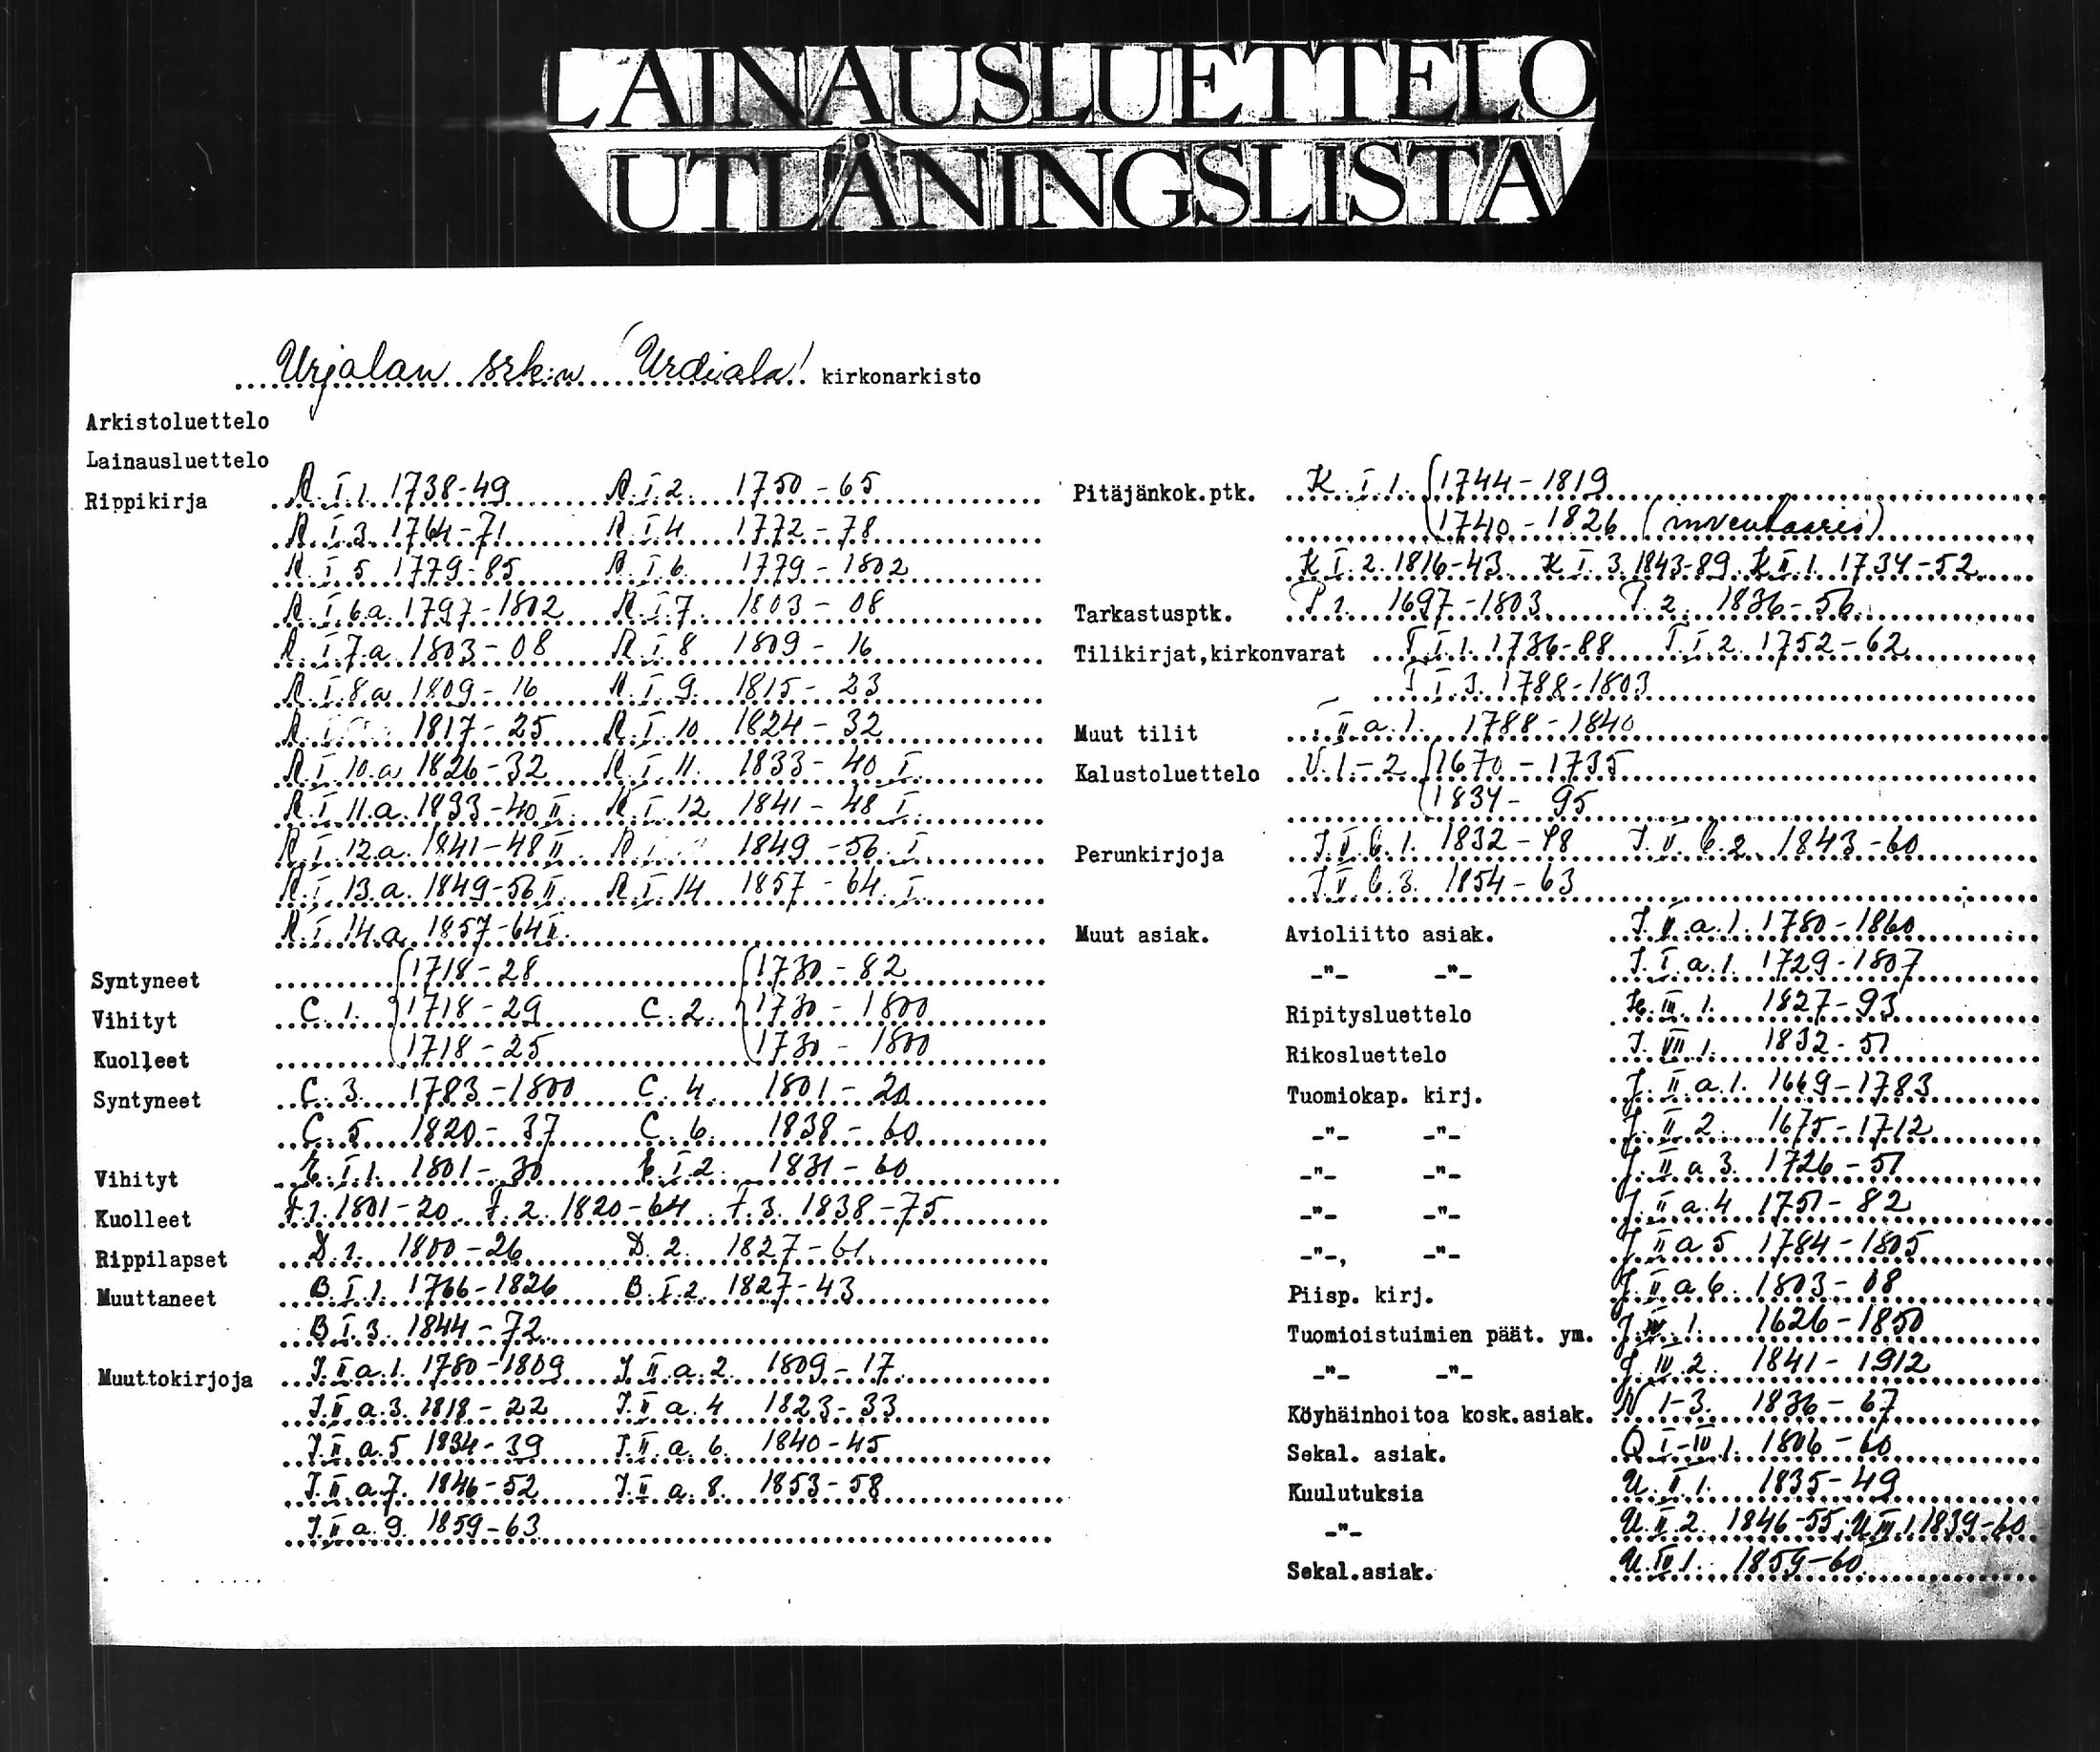 LAINAUSLUETTELO
UTLÅNINGSLISTA
Urjalan srk:n (Urdiala) kirkonarkisto
Arkistoluettelo
Lainausluettelo
Rippikirja A.I.1. 1738-49 A.I.2. 1750-65
A.I.3. 1764-71 A.I.4 1772-78
A.I.5 1779-85 A.I.6. 1779-1802
A.I.6.a. 1797-1802 A.I.7. 1803-08
A.I.7.a 1803-08 A.I.8 1809-16
A.I.8.a 1809-16 A.I.9. 1815-23
A.I. 1817-25 A.I.10 1824-32
A.I.10.a 1826-32 A.I.11. 1833-40 I.
A.I.11.a. 1833-40 II. A.I.12 1841-48 I.
A.I.12.a. 1841-48 II A.I. 1849-56. I.
A.I.13.a. 1849-56 II A.I.14 1857-64. I.
A.I.14.a 1857-64 II.
Syntyneet 1718-28 1730-82
Vihityt C.1. 1718-29 C.2. 1730-1800
Kuolleet 1718-25 1730-1800
Syntyneet C.3. 1783-1800 C.4. 1801-20
C.5 1820-37 C.6. 1838-60
Vihityt E.I.1. 1801-30 E.I.2. 1831-60
Kuolleet F.1. 1801-20. F.2. 1820-64. F.3. 1838-75
Rippilapset D.1. 1800-26 D.2. 1827-61.
Muuttaneet B.I.1. 1766-1826 B.I.2. 1827-43
B.I.3. 1844-72
Muuttokirjoja J.II a.1. 1780-1809 J.II.a.2. 1809-17
J.II a.3. 1818-22 J.II a.4 1823-33
J.II a.5 1834-39 J.II.a.6. 1840-45
J.II a.7. 1846-52 J.II a.8. 1853-58
J.II a.9. 1859-63
Pitäjänkok.ptk. K.I.1. 1744-1819
1740-1826 (inventaario)
K I.2. 1816-43. K I.3. 1843-89. K II.1. 1734-52
Tarkastusptk. P 1. 1697-1803 P.2. 1836-56.
Tilikirjat,kirkonvarat T.I.1. 1736-88 T.I.2. 1752-62
T I.3. 1788-1803
Muut tilit II a.1. 1788-1840
Kalustoluettelo V.1.-2 1670-1735
1834-95
Perunkirjoja J.V.b.1. 1832-48 J.V.b.2. 1843-60
J.V.b.3. 1854-63
Muut asiak. Avioliitto asiak. J.V.a.1. 1780-1860
-"- -"- J.I.a.1. 1729-1807
Ripitysluettelo H.III.1. 1827-93
Rikosluettelo J.VII.1. 1832-51
Tuomiokap. kirj. J.II a.1. 1669-1783
-"- -"- J.II.2. 1675-1712
-"- -"- J.II a 3. 1726-51
-"- -"- J.II a.4 1751-82
-"-, -"- J II a 5 1784-1805
Piisp. kirj. J II a 6. 1803-08
Tuomioistuimien päät. ym. J.IV.1. 1626-1850
-"- -"- J.IV.2. 1841-1912
Köyhäinhoitoa kosk.asiak. N 1-3. 1836-67
Sekal. asiak. Q I-IV 1. 1806-60
Kuulutuksia U.II.1. 1835-49
-"- U.II.2. 1846-55, U III 1. 1839-60
Sekal.asiak. U.IV 1. 1859-60